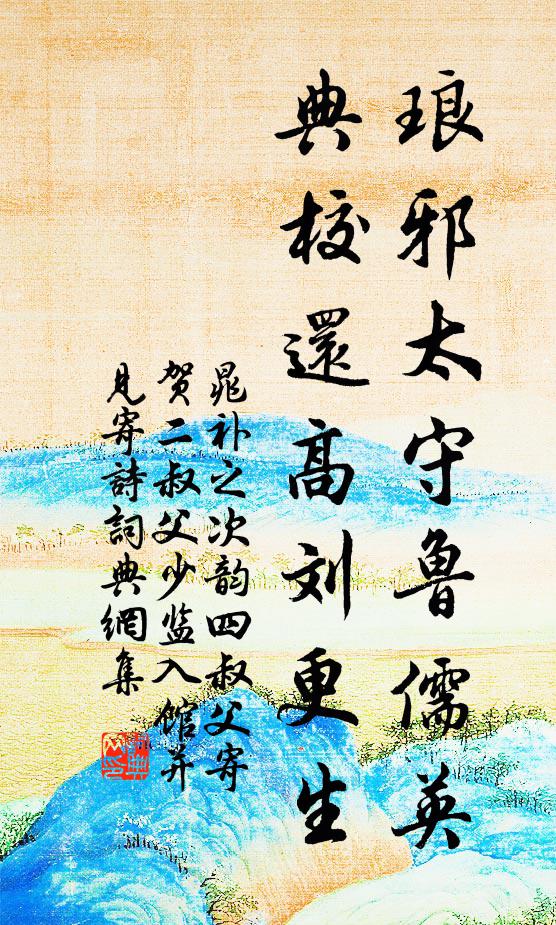 琅邪太守鲁儒英
典校還高刘更生
晁补之次韵四叔父寄
贺二叔父少监入馆并
見寄詩詞典網集